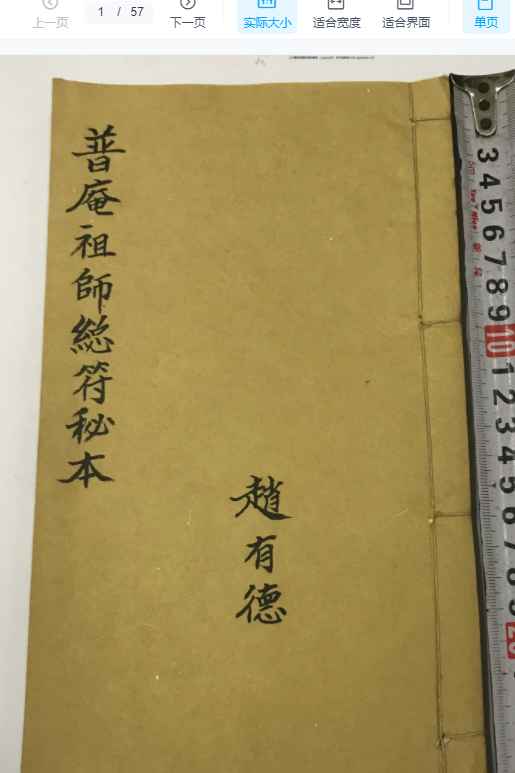 上一页
1 / 57
下一页
实际大小
适合宽度
适合界面
单页
普庵祖師總符秘本
趙有德
3
4
5
6
7
8
9
10
1
2
3
4
5
6
7
8
9
20